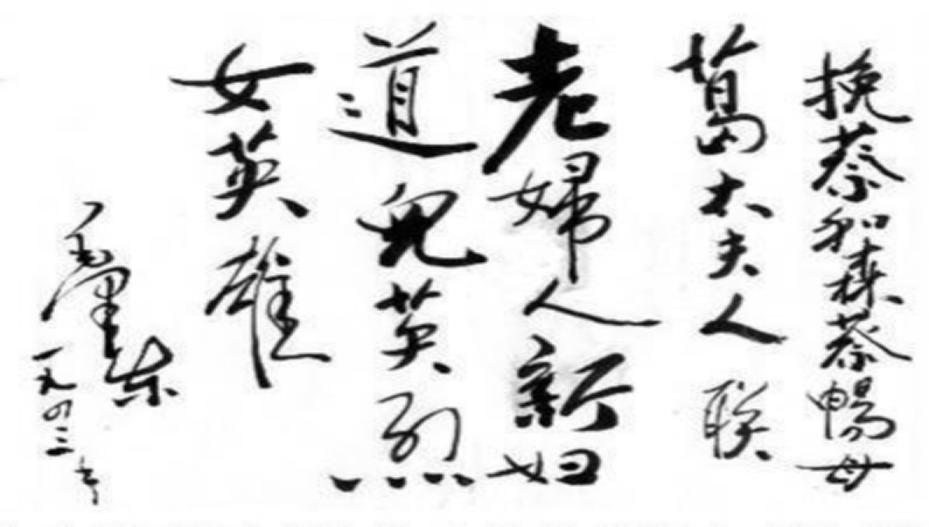 挽蔡和森蔡暢母
葛太夫人联
老婦人新妇
道兒英烈
女英雄
毛澤东
一九四三年